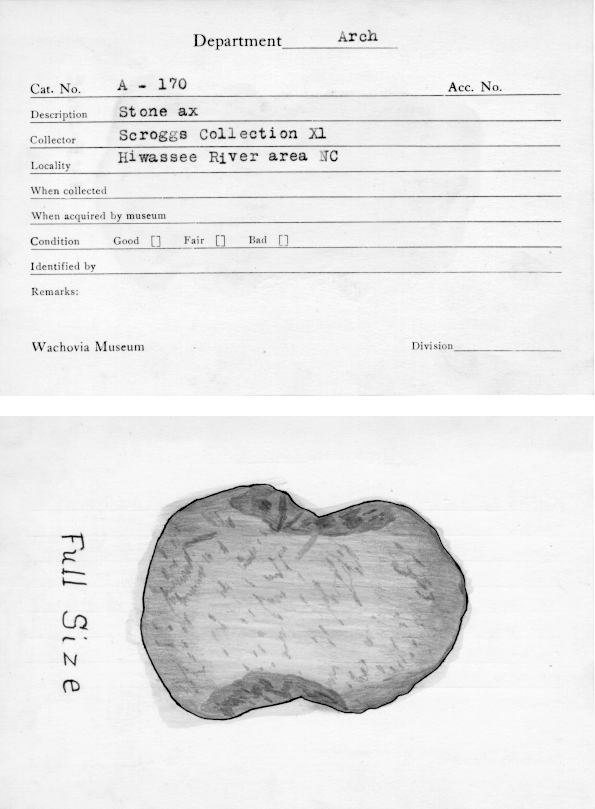 Department Arch
Cat. No. A - 170 Acc. No.
Description Stone ax
Collector Scroggs Collection X1
Locality Hiwassee River area NC
When collected
When acquired by museum
Condition Good [] Fair [] Bad []
Identified by
Remarks:
Wachovia Museum Division
Full Size